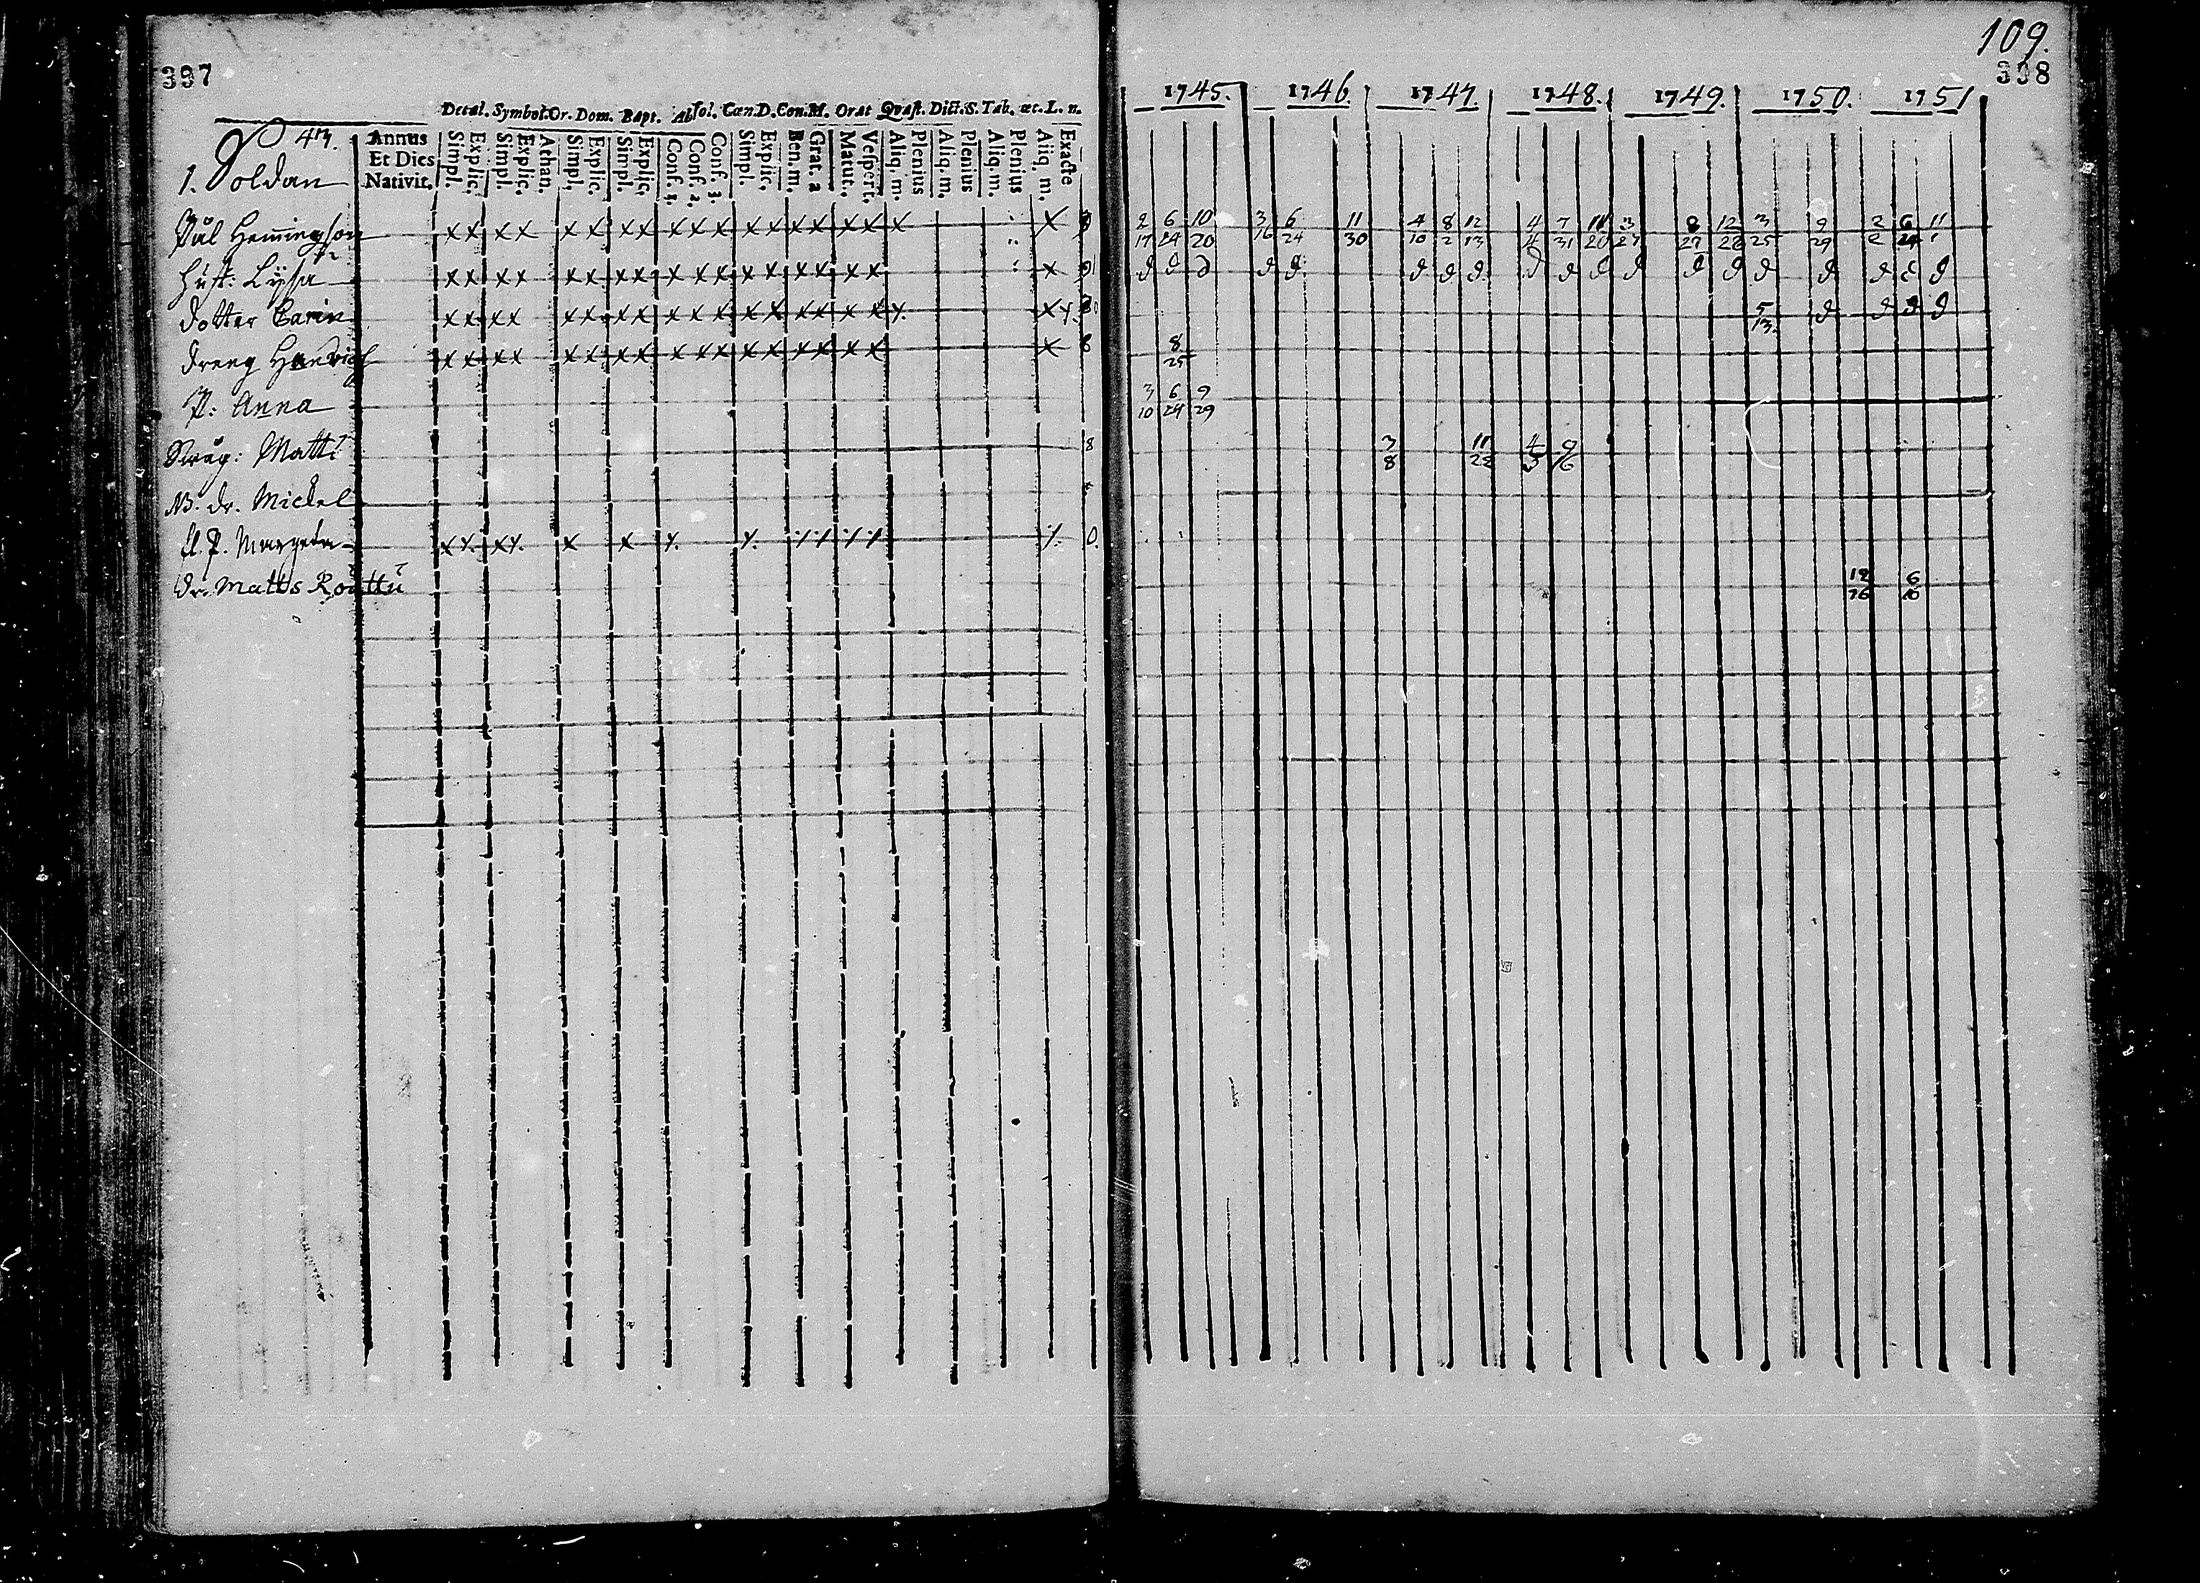 397
Decal. Symbol. Or. Dom. Bapt. Absol. Cœn. D. Con. M. Orat Quæst. Dict. S. Tab. œc. L. n.
Annus Et Dies Nativit. Simpl. Explic. Simpl. Explic. Athan. Simpl. Explic. Simpl. Explic. Conf. 1. Conf. 2. Conf. 3. Simpl. Explic. Ben. m. Grat. a Matut. Vespert. Aliq. m. Plenius Aliq. m. Plenius Aliq. m. Plenius Aliq. m. Exacte
1. Soldan
Pål Hemmingson x x x x x x x x x x x x x x x x x x x
Hust: Lyssa x x x x x x x x x x x x x x x x x x
dotter Carin x x x x x x x x x x x x x x x x x
dreng Hendrich x x x x x x x x x x x x x x x x x x 8
P: Anna
Matts 8
NB. dr. Mickel
P. Margeta x x x x x x
dr. Matts
109.
398
1745. 1746. 1747. 1748. 1749. 1750. 1751
2/17 6/24 10/20 3/16 6/24 11/30 4/10 8/2 12/13 4/4 7/31 11/20 3/27 8/27 12/26 3/25 9/29 2/2 6/24 11/1
d d d d d d d d d d d d d d d d d d d
5/13. d d d d
8/25
3/10 6/24 9/29
3/8 11/22
12/26 6/16